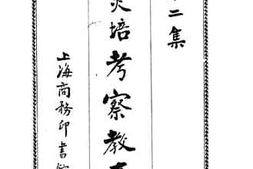 二集
炎培考察教
上海商務印書館